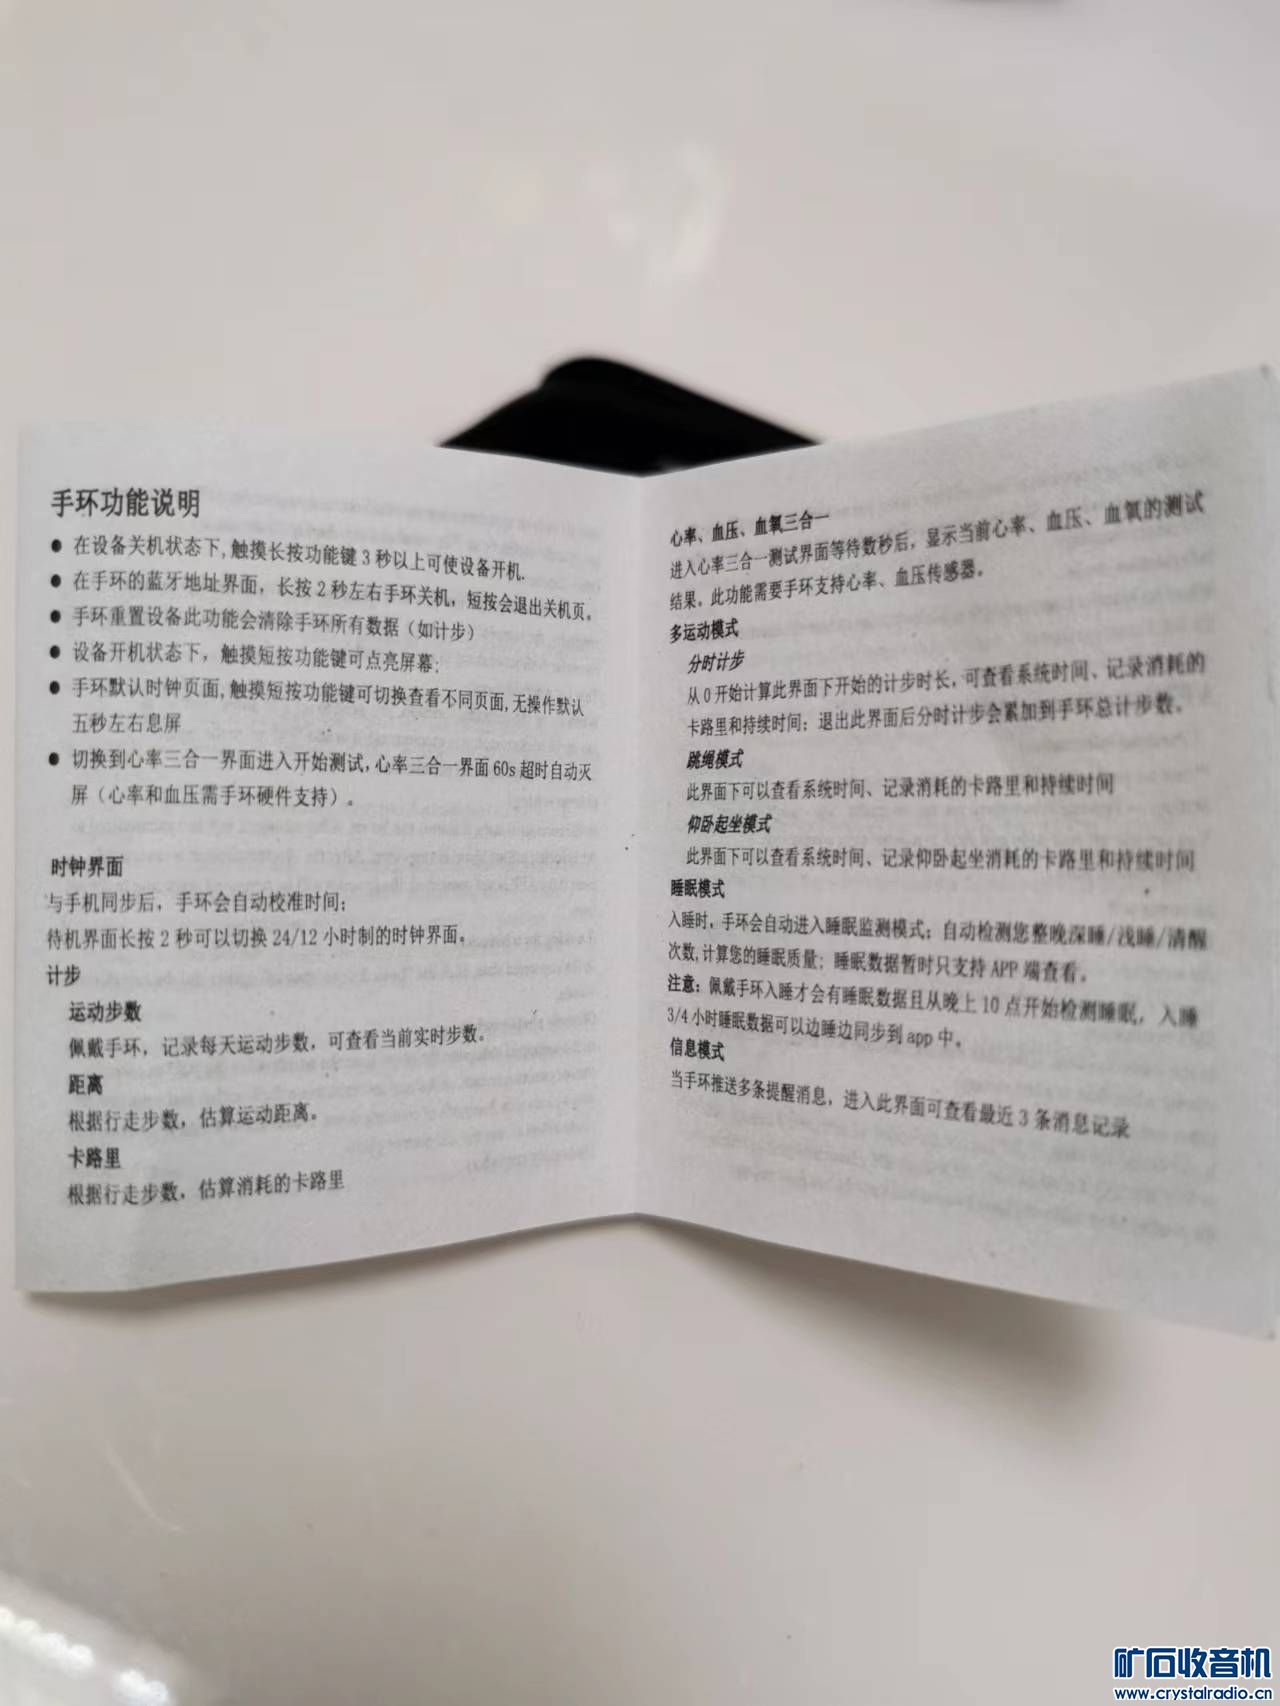 手环功能说明
● 在设备关机状态下,触摸长按功能键3秒以上可使设备开机.
● 在手环的蓝牙地址界面，长按2秒左右手环关机，短按会退出关机页。
● 手环重置设备此功能会清除手环所有数据（如计步）
● 设备开机状态下，触摸短按功能键可点亮屏幕;
● 手环默认时钟页面,触摸短按功能键可切换查看不同页面,无操作默认
五秒左右息屏
● 切换到心率三合一界面进入开始测试,心率三合一界面60s超时自动灭
屏（心率和血压需手环硬件支持）。
时钟界面
与手机同步后，手环会自动校准时间;
待机界面长按2秒可以切换24/12小时制的时钟界面。
计步
运动步数
佩戴手环，记录每天运动步数，可查看当前实时步数。
距离
根据行走步数，估算运动距离。
卡路里
根据行走步数，估算消耗的卡路里
心率、血压、血氧三合一
进入心率三合一测试界面等待数秒后，显示当前心率、血压、血氧的测试
结果。此功能需要手环支持心率、血压传感器。
多运动模式
分时计步
从0开始计算此界面下开始的计步时长，可查看系统时间、记录消耗的
卡路里和持续时间；退出此界面后分时计步会累加到手环总计步数。
跳绳模式
此界面下可以查看系统时间、记录消耗的卡路里和持续时间
仰卧起坐模式
此界面下可以查看系统时间、记录仰卧起坐消耗的卡路里和持续时间
睡眠模式
入睡时，手环会自动进入睡眠监测模式；自动检测您整晚深睡/浅睡/清醒
次数,计算您的睡眠质量；睡眠数据暂时只支持APP端查看。
注意：佩戴手环入睡才会有睡眠数据且从晚上10点开始检测睡眠，入睡
3/4小时睡眠数据可以边睡边同步到app中。
信息模式
当手环推送多条提醒消息，进入此界面可查看最近3条消息记录
矿石收音机
www.crystalradio.cn